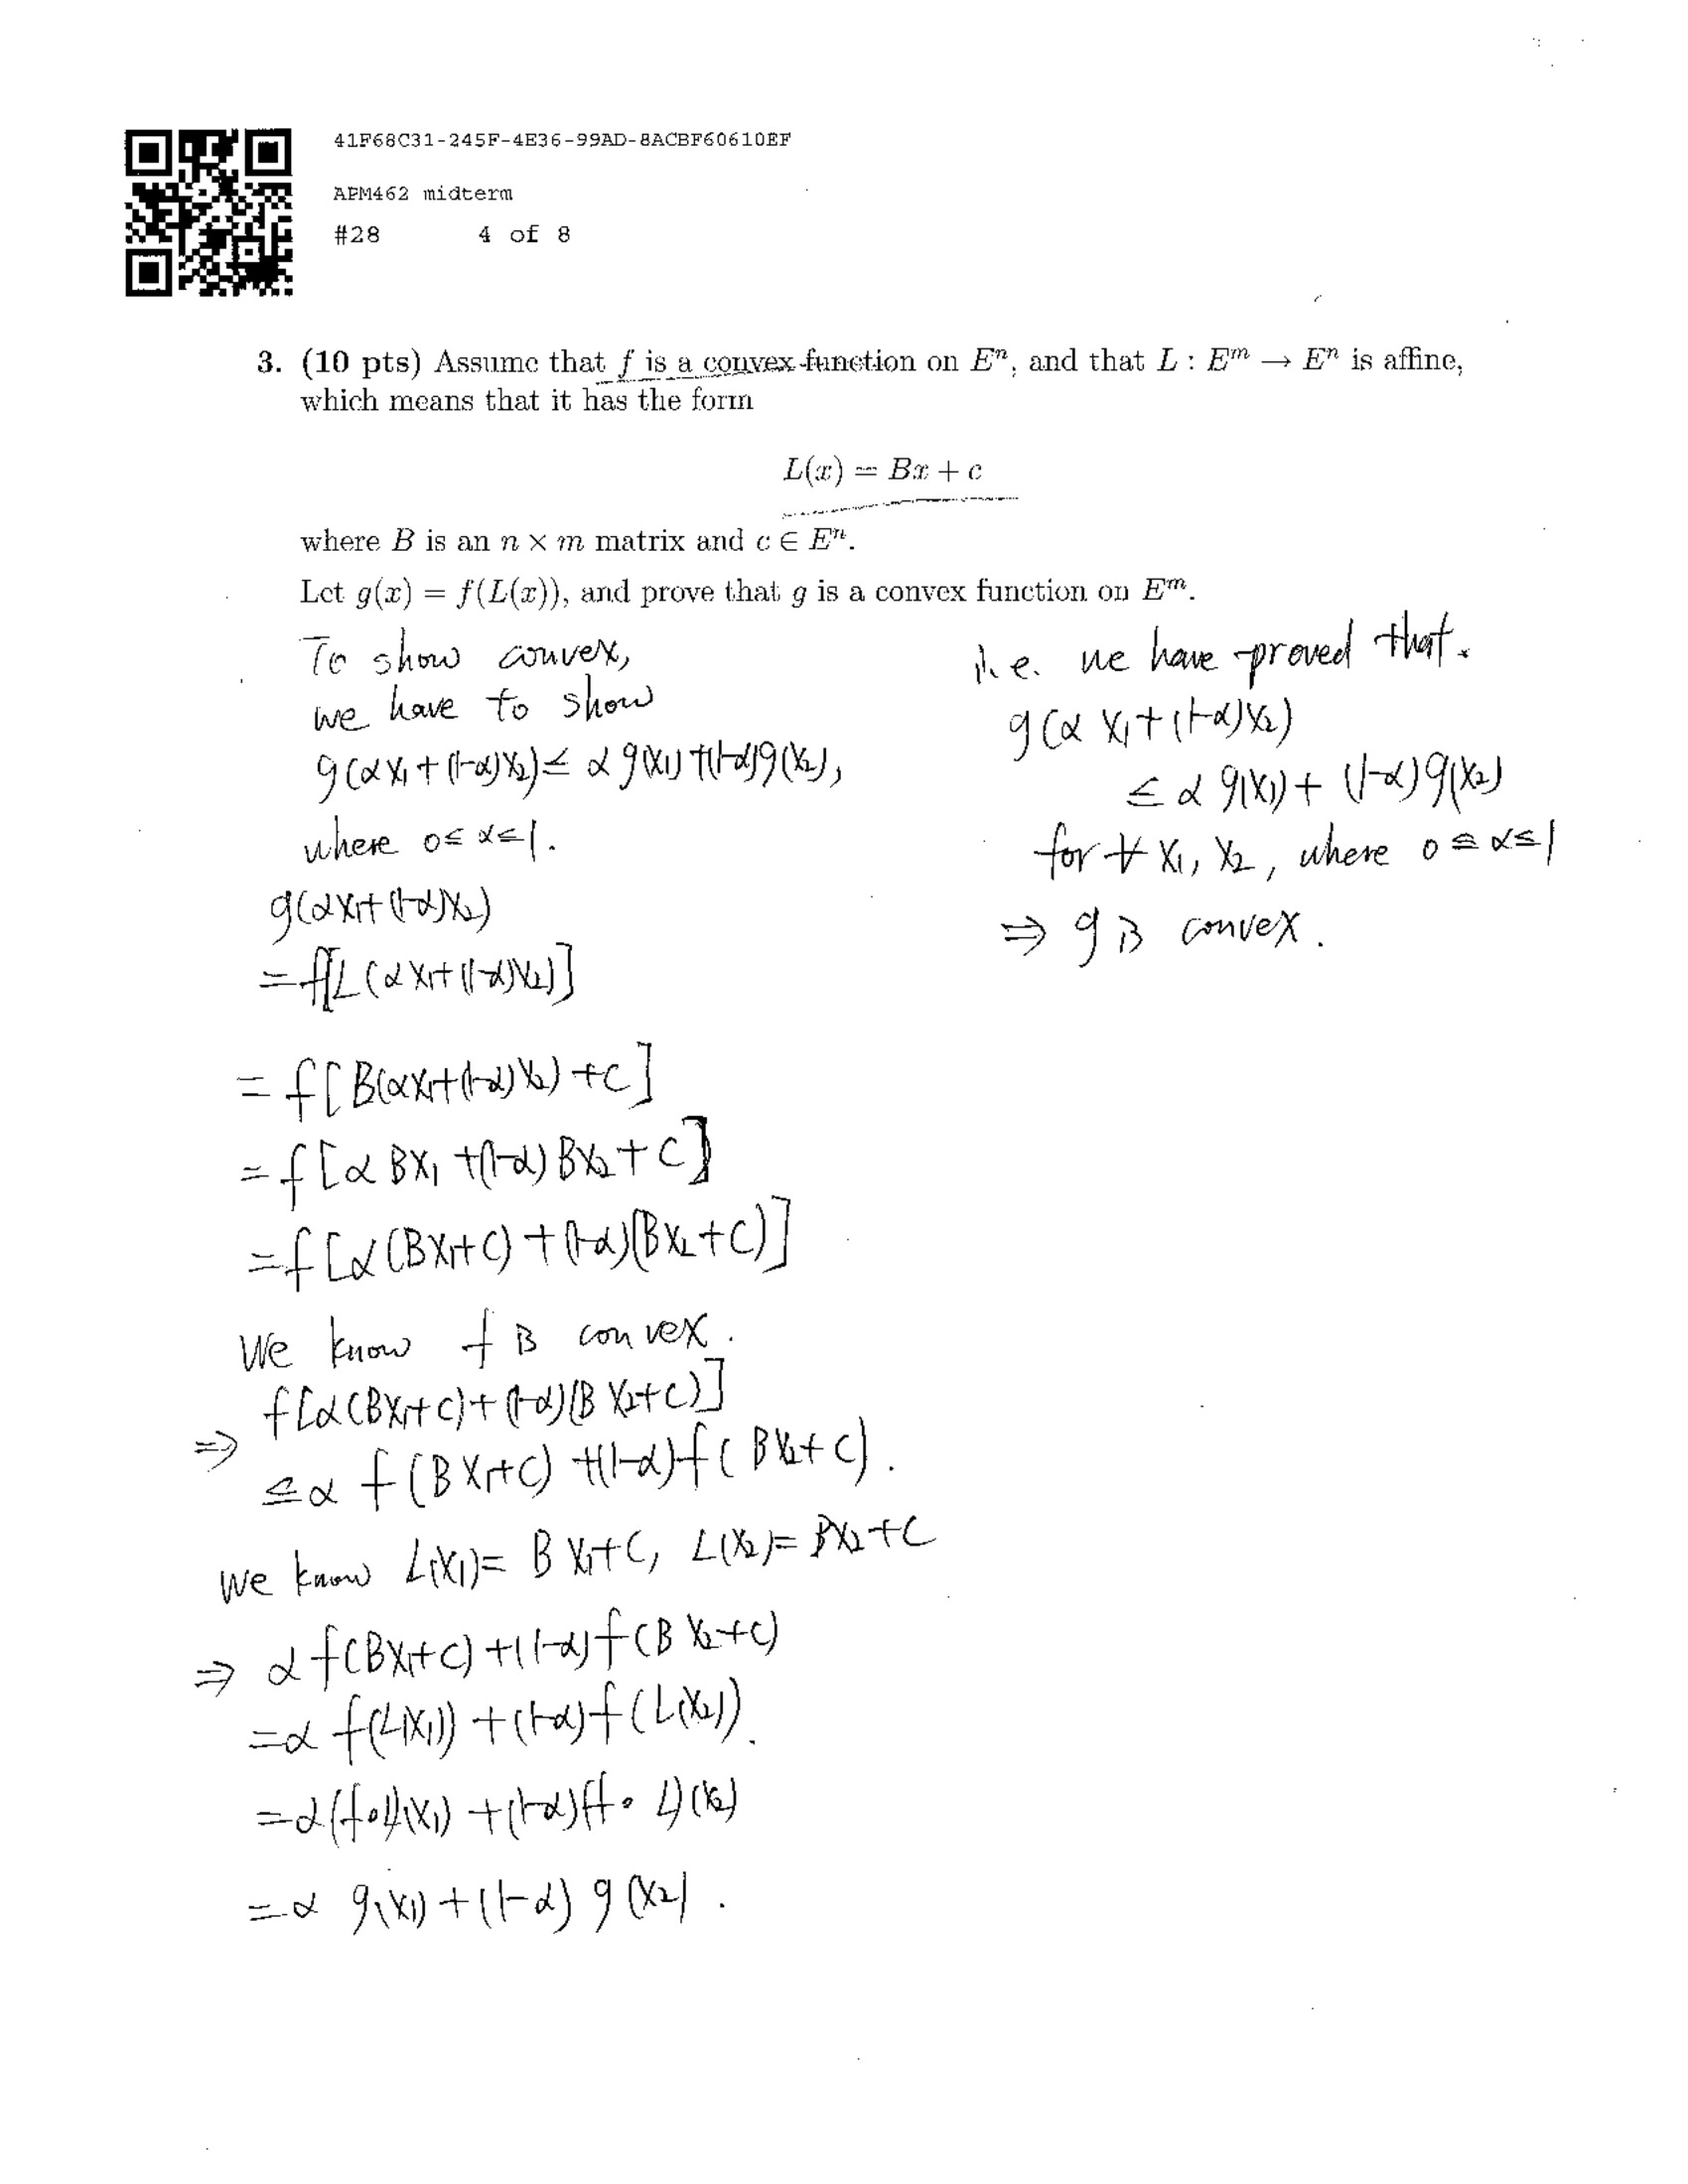 41F68C31-245F-4E36-99AD-8ACBF60610EF
APM462 midterm
#28 4 of 8
3. (10 pts) Assume that f is a convex function on Eⁿ, and that L : Eᵐ → Eⁿ is affine,
which means that it has the form
L(x) = Bx + c
where B is an n × m matrix and c ∈ Eⁿ.
Let g(x) = f(L(x)), and prove that g is a convex function on Eᵐ.
To show convex,
we have to show
g(αx₁ + (1-α)x₂) ≤ α g(x₁) + (1-α)g(x₂),
where 0 ≤ α ≤ 1.
g(αx₁ + (1-α)x₂)
= f[L(αx₁ + (1-α)x₂)]
= f[B(αx₁ + (1-α)x₂) + c]
= f[α Bx₁ + (1-α) Bx₂ + c]
= f[α(Bx₁+c) + (1-α)(Bx₂+c)]
We know f is convex.
⇒ f[α(Bx₁+c) + (1-α)(Bx₂+c)]
≤ α f(Bx₁+c) + (1-α) f(Bx₂+c).
We know L(x₁) = Bx₁+c, L(x₂) = Bx₂+c
⇒ α f(Bx₁+c) + (1-α) f(Bx₂+c)
= α f(L(x₁)) + (1-α) f(L(x₂)).
= α (f∘L)(x₁) + (1-α)(f∘L)(x₂)
= α g(x₁) + (1-α) g(x₂).
i.e. we have proved that.
g(α x₁ + (1-α)x₂)
≤ α g(x₁) + (1-α) g(x₂)
for ∀ x₁, x₂, where 0 ≤ α ≤ 1
⇒ g is convex.